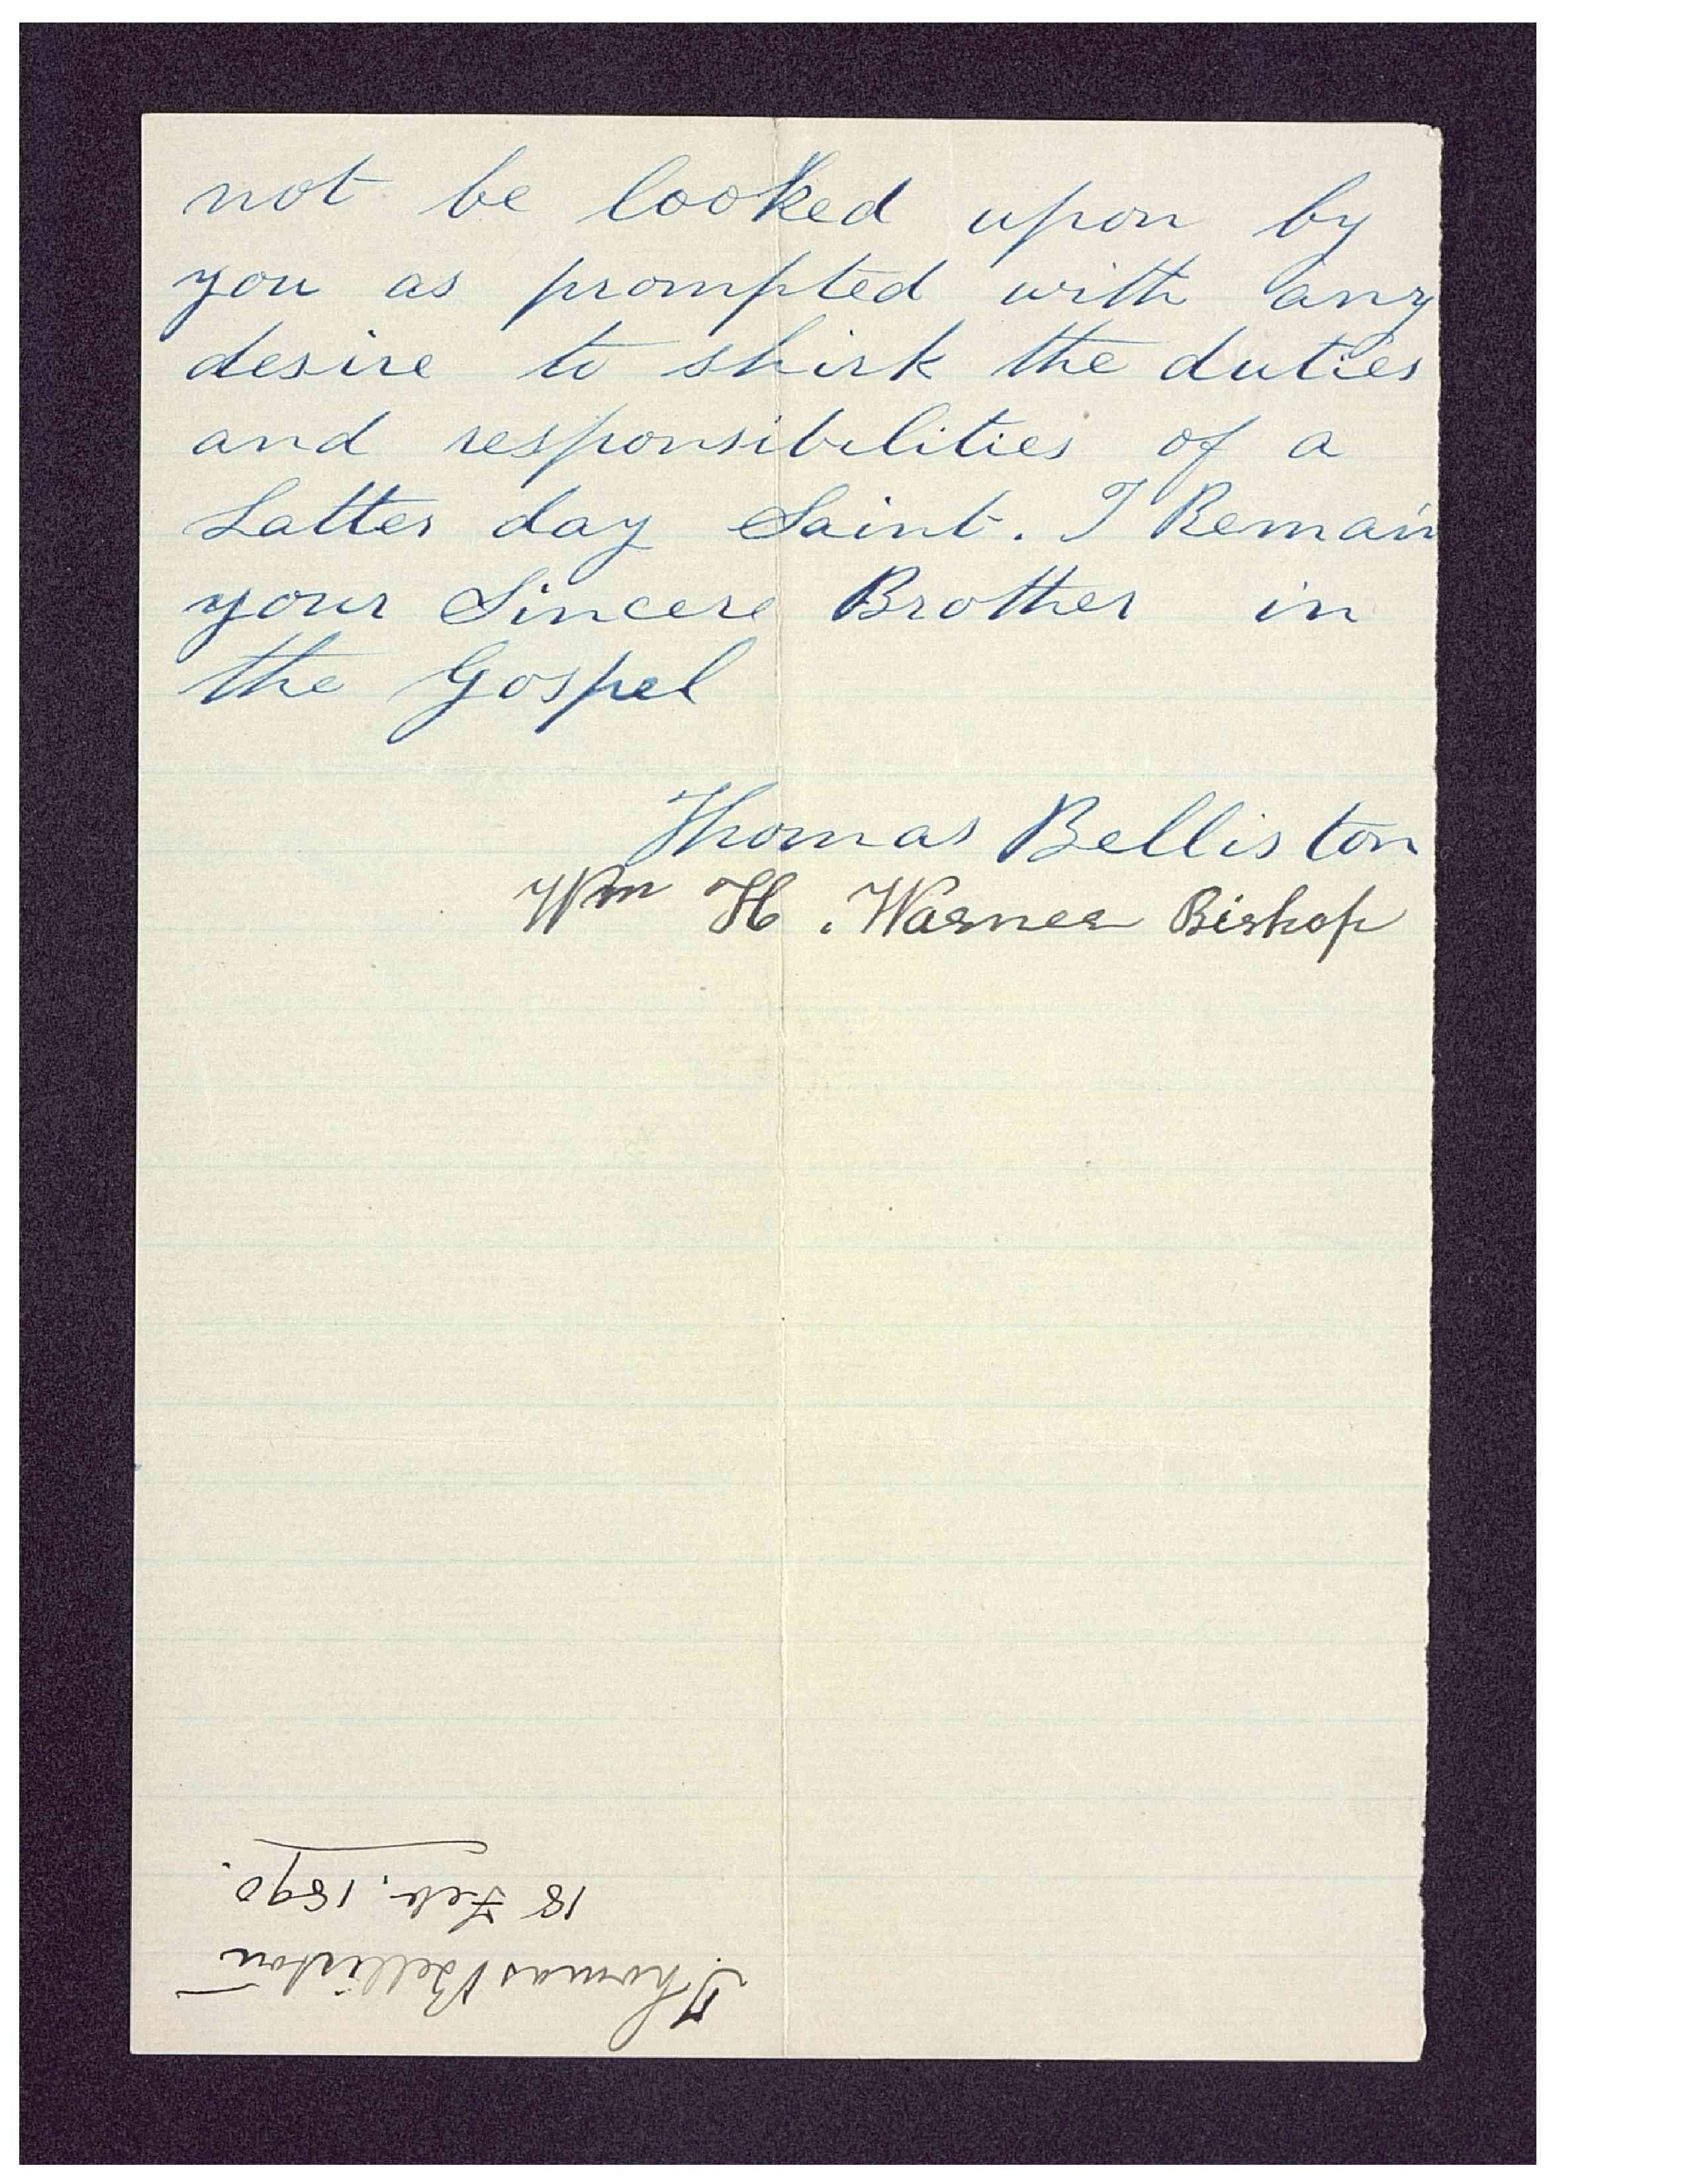 not be looked upon by
you as prompted with any
desire to shirk the duties
and responsibilities of a
Latter day Saint. I Remain
your Sincere Brother in
the Gospel
Thomas Belliston
Wm H. Warner Bishop
Thomas Belliston
18 Feb. 1890.